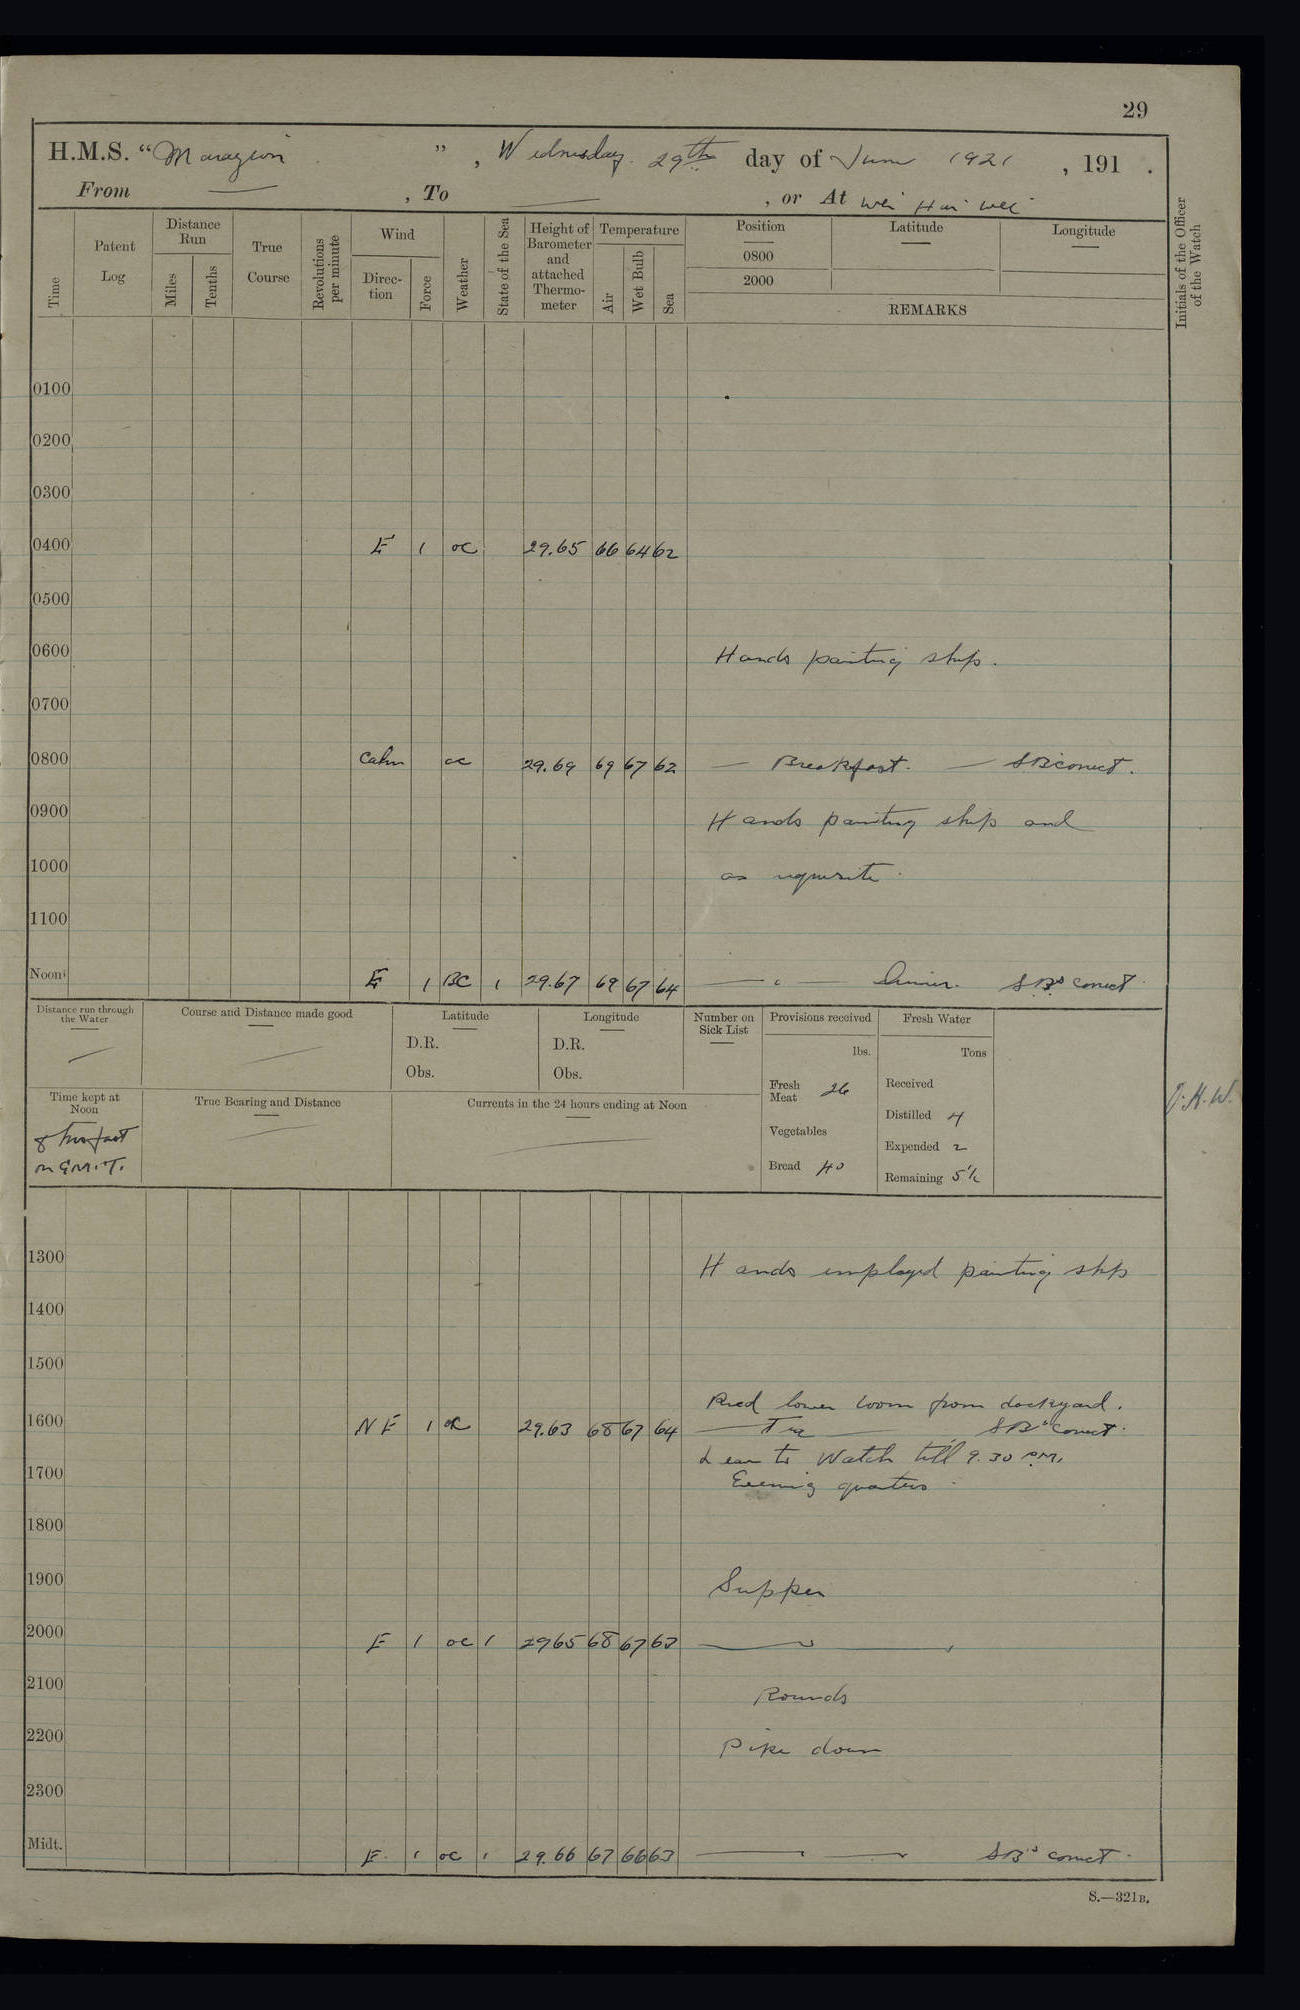 29
H.M.S. “Marazion ” , Wednesday 29th day of June 1921 , 191 .
From — , To — , or At Wei Hai Wei
Time
Patent Log
Distance Run
Miles
Tenths
True Course
Revolutions per minute
Wind
Direction
Force
Weather
State of the Sea
Height of Barometer and attached Thermometer
Temperature
Air
Wet Bulb
Sea
Position
0800
2000
Latitude
Longitude
REMARKS
Initials of the Officer of the Watch
0100
0200
0300
0400 E 1 oc 29.65 66 64 62
0500
0600 Hands painting ship.
0700
0800 Calm oc 29.69 69 67 62 — Breakfast. — SB correct.
0900 Hands painting ship and
1000 as requisite.
1100
Noon E 1 BC 1 29.67 69 67 64 — Dinner. SBs correct
Distance run through the Water
Course and Distance made good
Latitude
D.R.
Obs.
Longitude
D.R.
Obs.
Number on Sick List
Provisions received
lbs.
Fresh Meat 26
Vegetables
Bread 40
Fresh Water
Tons
Received
Distilled 4
Expended 2
Remaining 5½
Time kept at Noon
8 hrs fast
on G.M.T.
True Bearing and Distance
Currents in the 24 hours ending at Noon
1300 Hands employed painting ship
1400
1500
Rced lower boom from dockyard.
1600 NE 1 oc 29.63 68 67 64 — Tea — SBs correct.
Leave to Watch till 9.30 P.M.
1700 Evening quarters
1800
1900 Supper
2000 E 1 oc 1 2965 68 67 63
2100 Rounds
2200 Pipe down
2300
Midt. E 1 oc 1 29.66 67 66 63 — SBs correct.
S.—321B.